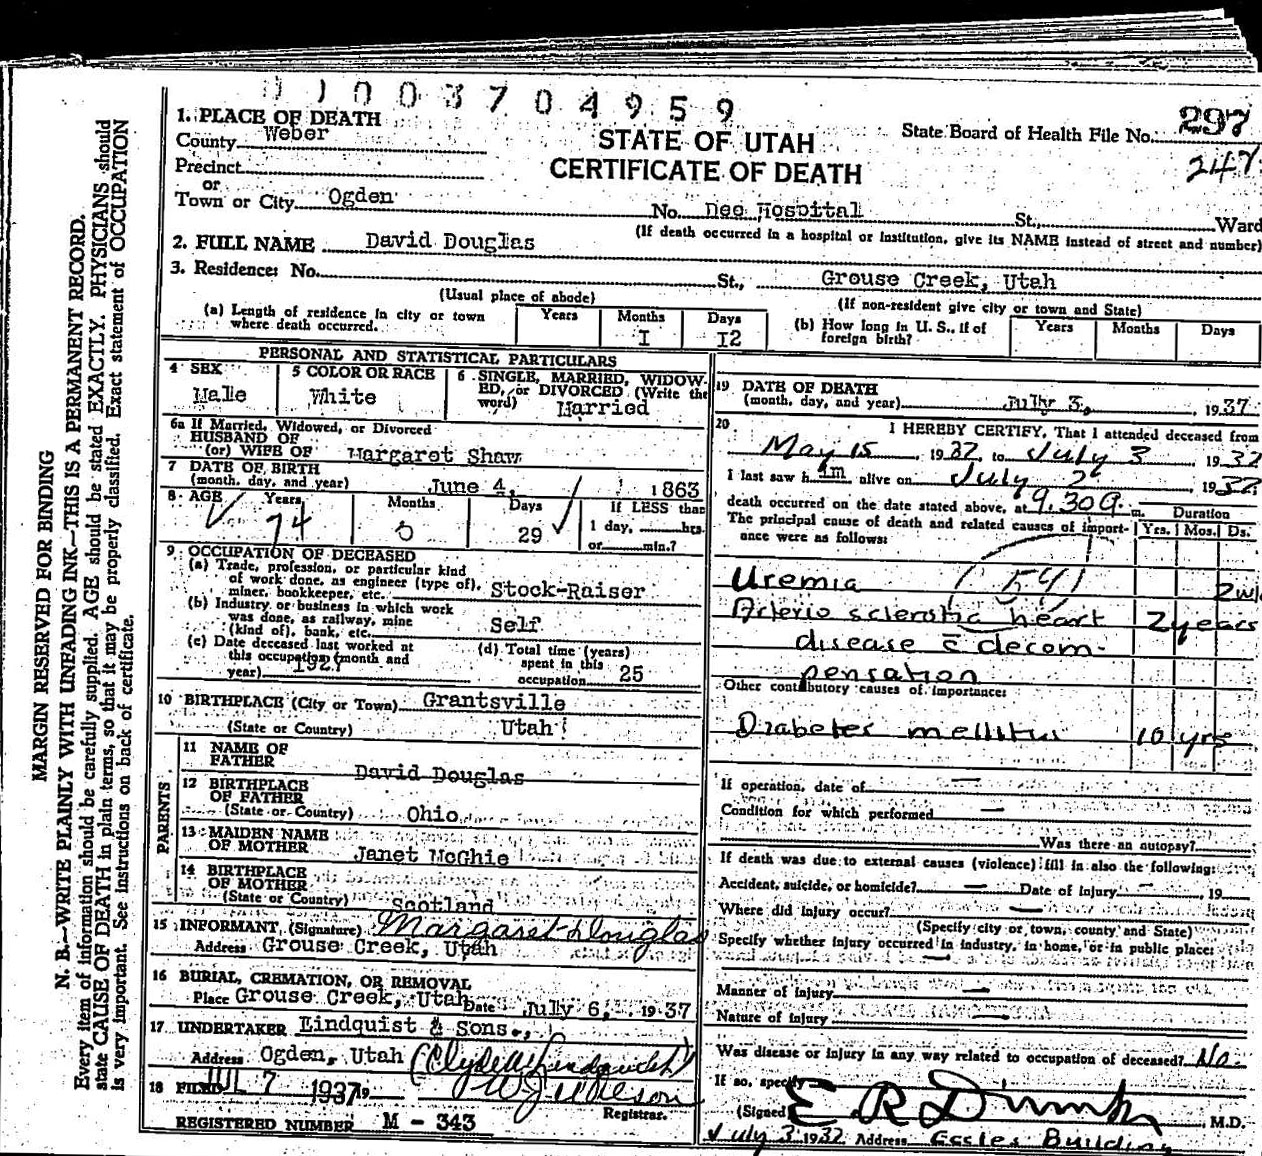 0100370 4959
1. PLACE OF DEATH
County Weber
STATE OF UTAH
CERTIFICATE OF DEATH
State Board of Health File No. 297
247
Precinct
or
Town or City Ogden No. Dee Hospital St., Ward
(If death occurred in a hospital or institution, give its NAME instead of street and number)
2. FULL NAME David Douglas
3. Residence: No. St., Grouse Creek, Utah
(Usual place of abode) (If non-resident give city or town and State)
(a) Length of residence in city or town where death occurred. Years Months I Days I2
(b) How long in U. S., if of foreign birth? Years Months Days
PERSONAL AND STATISTICAL PARTICULARS
4 SEX Male
5 COLOR OR RACE White
6 SINGLE, MARRIED, WIDOWED, or DIVORCED (Write the word) Married
6a If Married, Widowed, or Divorced
HUSBAND OF
(or) WIFE OF Margaret Shaw
7 DATE OF BIRTH
(month, day, and year) June 4, 1863
8 AGE Years 74 Months 0 Days 29 If LESS than
1 day, hrs.
or min.?
9 OCCUPATION OF DECEASED
(a) Trade, profession, or particular kind
of work done, as engineer (type of),
miner, bookkeeper, etc. Stock-Raiser
(b) Industry or business in which work
was done, as railway, mine
(kind of), bank, etc. Self
(c) Date deceased last worked at
this occupation (month and
year)
(d) Total time (years)
spent in this
occupation 25
10 BIRTHPLACE (City or Town) Grantsville
(State or Country) Utah
PARENTS
11 NAME OF
FATHER David Douglas
12 BIRTHPLACE
OF FATHER
(State or Country) Ohio
13 MAIDEN NAME
OF MOTHER Janet McGhie
14 BIRTHPLACE
OF MOTHER
(State or Country) Scotland
15 INFORMANT, (Signature) Margaret Douglas
Address Grouse Creek, Utah
16 BURIAL, CREMATION, OR REMOVAL
Place Grouse Creek, Utah Date July 6, 1937
17 UNDERTAKER Lindquist & Sons.,
Address Ogden, Utah (Clyde Lindquist)
18 FILED JUL 7 1937 19 W J Wilson
Registrar.
REGISTERED NUMBER M - 343
19 DATE OF DEATH
(month, day, and year) July 3, , 1937
20 I HEREBY CERTIFY, That I attended deceased from
May 15, 1937, to July 3, 1937
I last saw him alive on July 2, 1937
death occurred on the date stated above, at 9.30a. m.
Duration
The principal cause of death and related causes of importance were as follows: Yrs. Mos. Ds.
Uremia 2wk
Arterio sclerotic heart 2 years
disease c̄ decom-
pensation
Other contributory causes of importance:
Diabetes mellitus 10 yrs
If operation, date of —
Condition for which performed —
Was there an autopsy?
If death was due to external causes (violence) fill in also the following:
Accident, suicide, or homicide? — Date of injury — 19
Where did injury occur? —
(Specify city or town, county and State)
Specify whether injury occurred in industry, in home, or in public place:
—
Manner of injury —
Nature of injury —
Was disease or injury in any way related to occupation of deceased? No.
If so, specify
(Signed) E R Dumke, M.D.
July 3 1937 Address Eccles Building
MARGIN RESERVED FOR BINDING
N. B.—WRITE PLAINLY WITH UNFADING INK—THIS IS A PERMANENT RECORD.
Every item of information should be carefully supplied. AGE should be stated EXACTLY. PHYSICIANS should
state CAUSE OF DEATH in plain terms, so that it may be properly classified. Exact statement of OCCUPATION
is very important. See instructions on back of certificate.